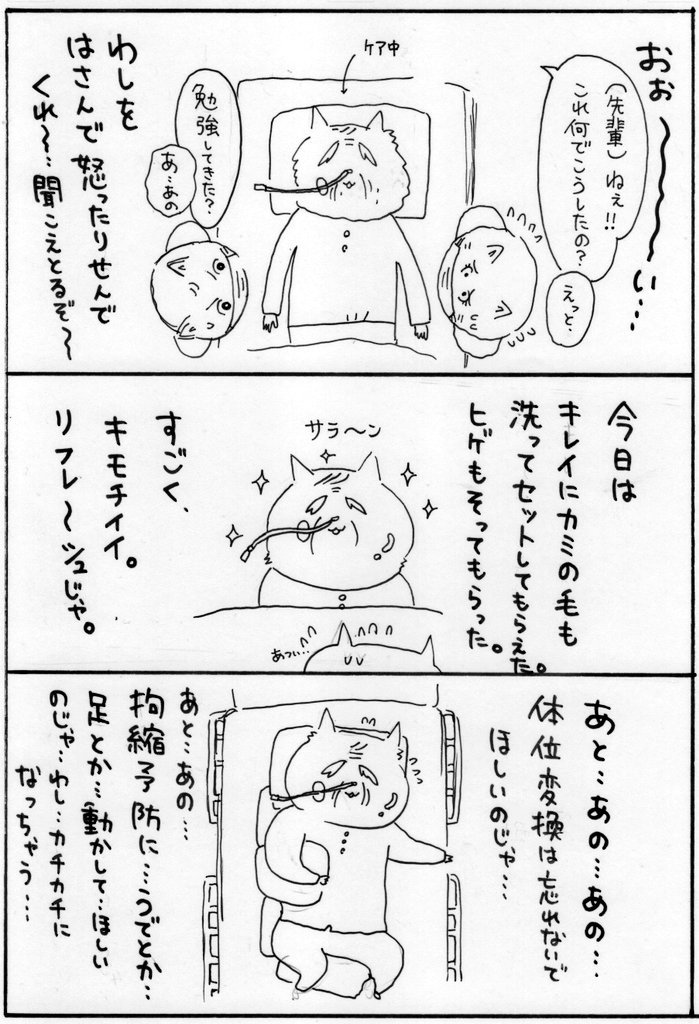 おぉ〜〜い…
(先輩)ねぇ!!
これ何でこうしたの?
えっと、
ケア中
勉強してきた?
あ…あの
わしを
はさんで怒ったりせんで
くれ〜…聞こえとるぞ〜
今日は
キレイにカミの毛も
洗ってセットしてもらえた。
ヒゲもそってもらった。
サラ〜ン
すごく、
キモチイイ。
リフレ〜シュじゃ。
あつい…
あと…あの…あの…
体位変換は忘れないで
ほしいのじゃ…
あと…あの…
拘縮予防に…うでとか…
足とか…動かして…ほしい
のじゃ…わし…カチカチに
なっちゃう…